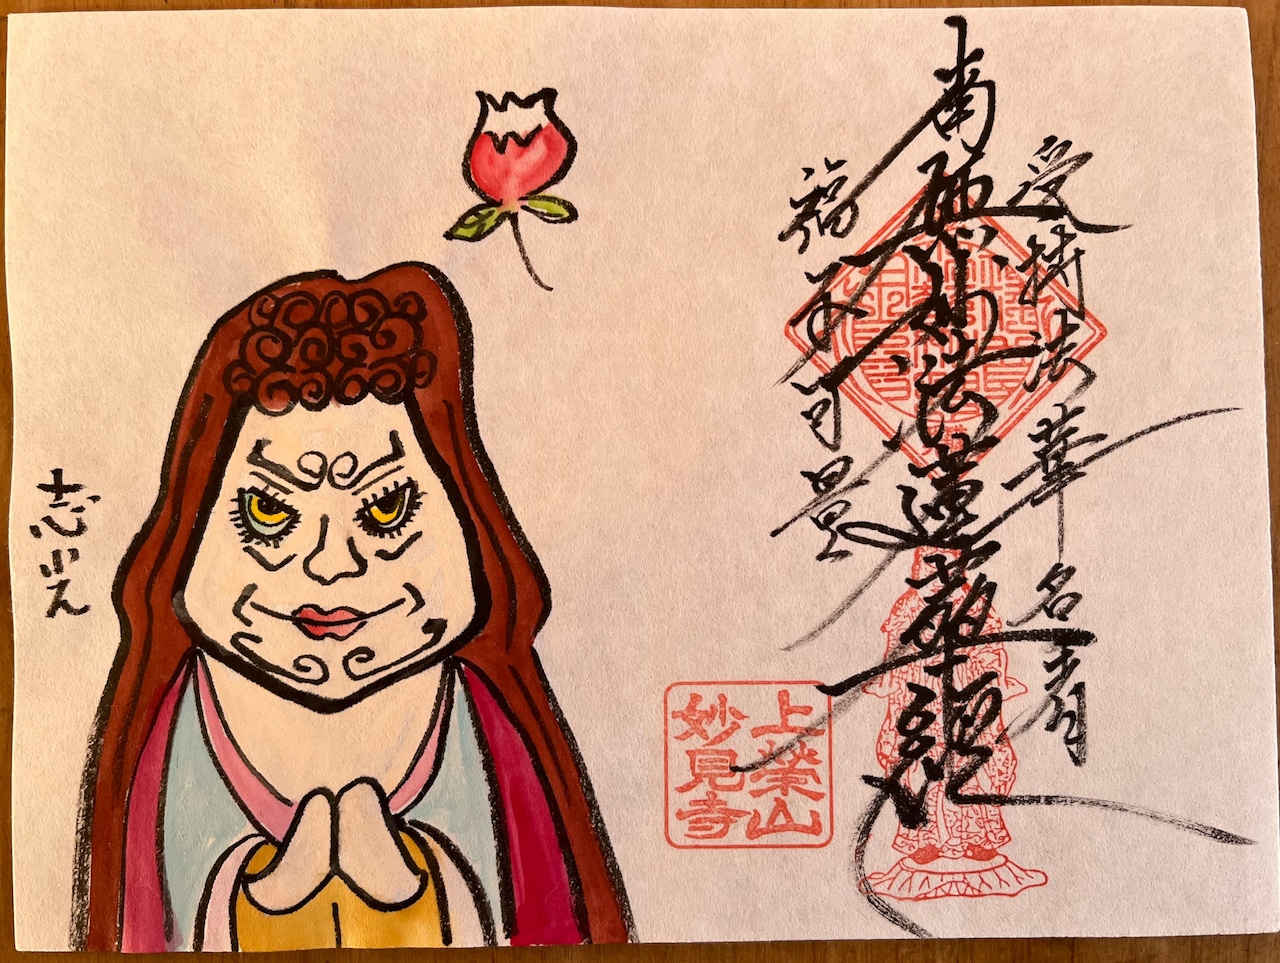 受持法華名者
南無妙法蓮華經
福不可量
上榮山
妙見寺